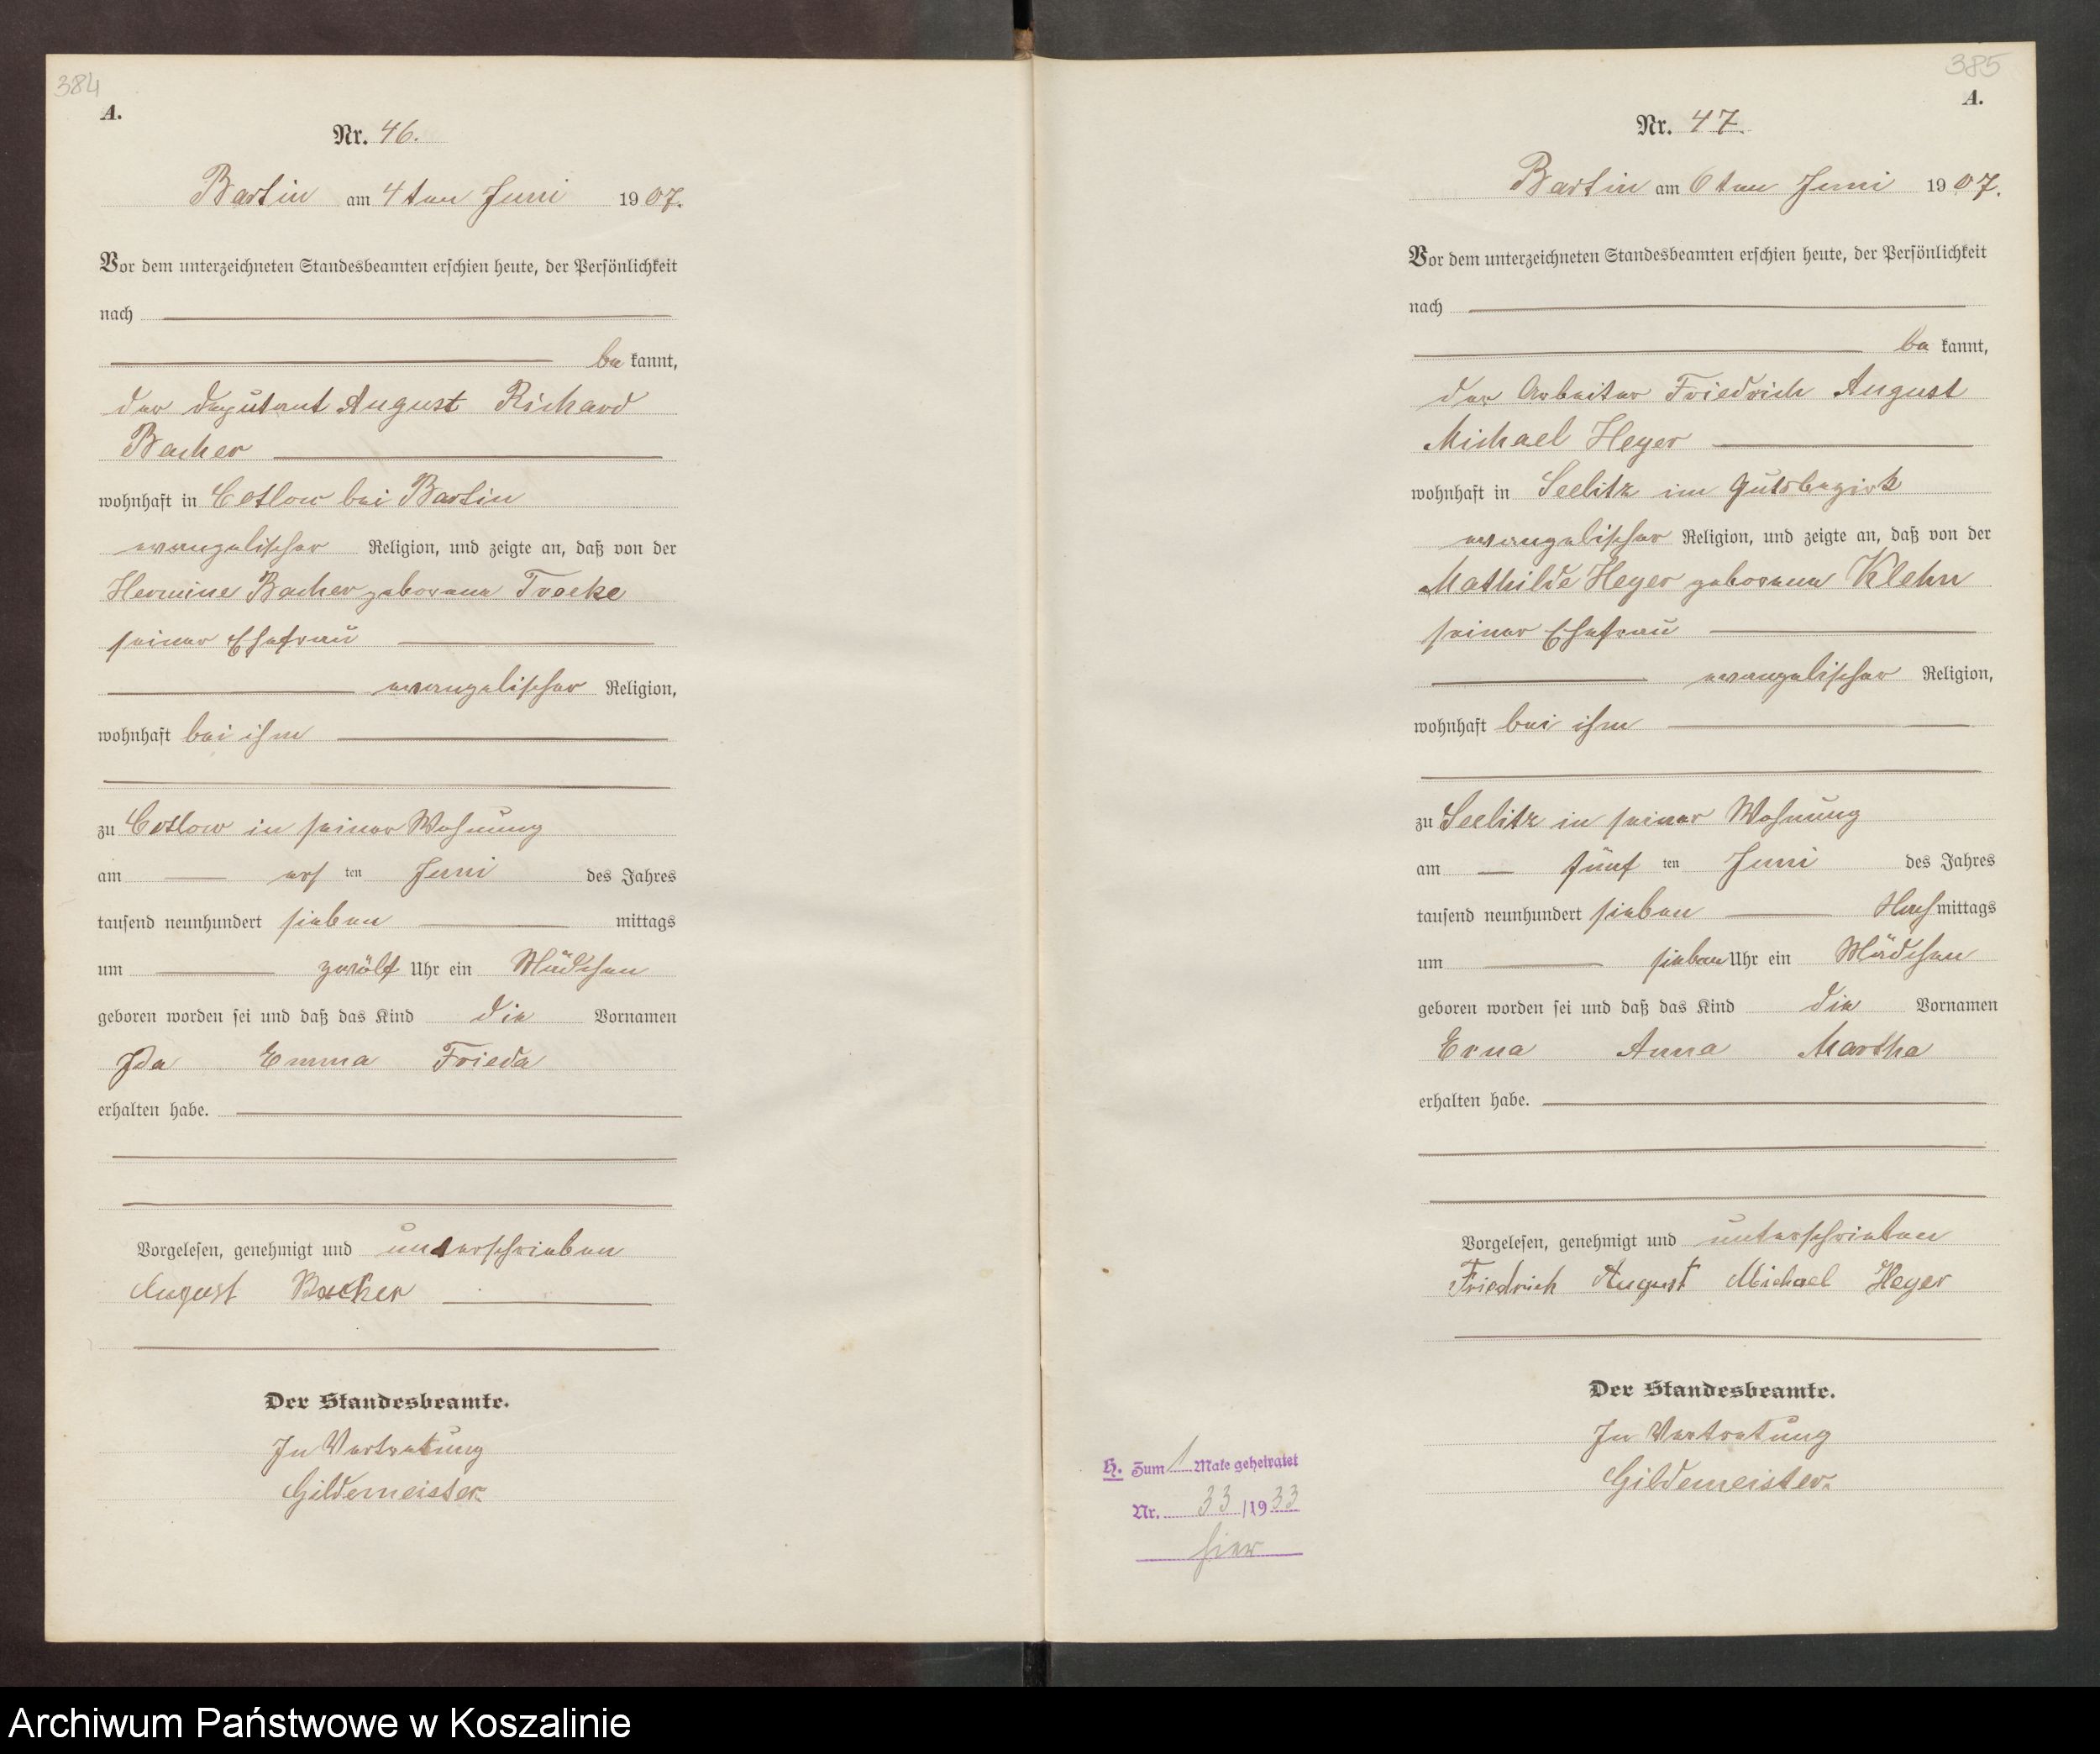 384
A.
Nr. 46.
Bartin am 4ten Juni 1907.
Vor dem unterzeichneten Standesbeamten erschien heute, der Persönlichkeit
nach
be kannt,
der Deputant August Richard
Bacher
wohnhaft in Cotlow bei Bartin
evangelischer Religion, und zeigte an, daß von der
Hermine Bacher geborene
seiner Ehefrau
evangelischer Religion,
wohnhaft bei ihm
zu Cotlow in seiner Wohnung
am ersten Juni des Jahres
tausend neunhundert sieben mittags
um zwölf Uhr ein Mädchen
geboren worden sei und daß das Kind die Vornamen
Ida Emma Frieda
erhalten habe.
Vorgelesen, genehmigt und unterschrieben
August Bacher
Der Standesbeamte.
In Vertretung
Gildemeister.
385
A.
Nr. 47.
Bartin am 6ten Juni 1907.
Vor dem unterzeichneten Standesbeamten erschien heute, der Persönlichkeit
nach
be kannt,
der Arbeiter Friedrich August
Michael Heyer
wohnhaft in Seelitz im Gutsbezirk
evangelischer Religion, und zeigte an, daß von der
Mathilde Heyer geborene Klehn
seiner Ehefrau
evangelischer Religion,
wohnhaft bei ihm
zu Seelitz in seiner Wohnung
am fünften Juni des Jahres
tausend neunhundert sieben Nachmittags
um sieben Uhr ein Mädchen
geboren worden sei und daß das Kind die Vornamen
Erna Anna Martha
erhalten habe.
Vorgelesen, genehmigt und unterschrieben
Friedrich August Michael Heyer
Der Standesbeamte.
In Vertretung
Gildemeister.
H. Zum 1 Male geheiratet
Nr. 33/1933
hier
Archiwum Państwowe w Koszalinie